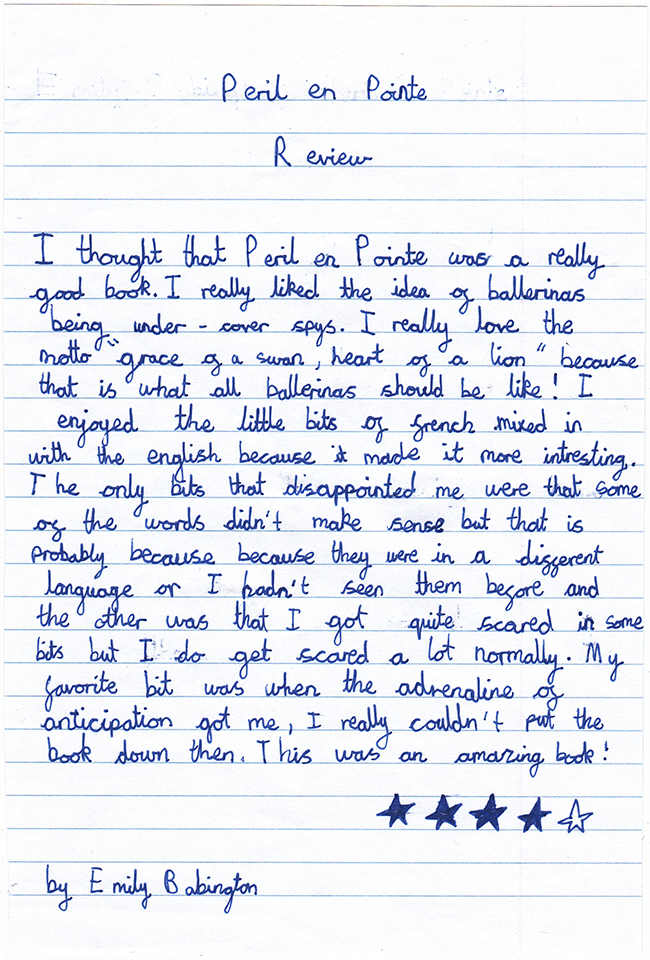 Peril en Pointe
Review
I thought that Peril en Pointe was a really
good book. I really liked the idea of ballerinas
being under - cover spys. I really love the
motto "grace of a swan, heart of a lion" because
that is what all ballerinas should be like! I
enjoyed the little bits of french mixed in
with the english because it made it more intresting.
The only bits that disappointed me were that some
of the words didn't make sense but that is
probably because because they were in a different
language or I hadn't seen them before and
the other was that I got quite scared in some
bits but I do get scared a lot normally. My
favorite bit was when the adrenaline of
anticipation got me, I really couldn't put the
book down then. This was an amazing book!
★★★★☆
by Emily Babington